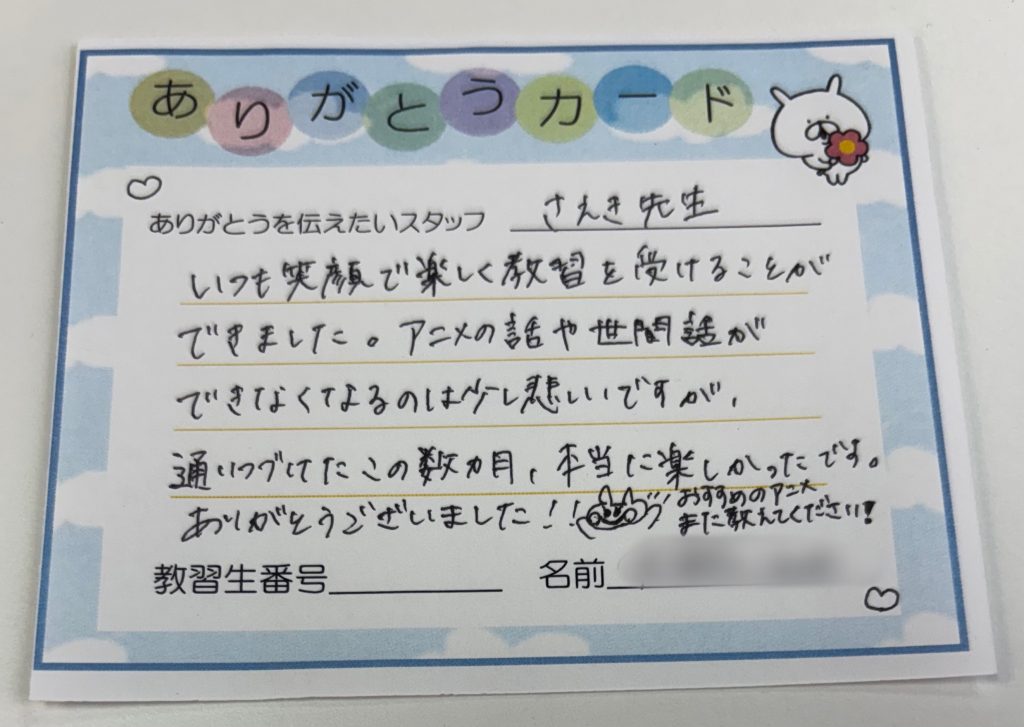 ありがとうカード
ありがとうを伝えたいスタッフ さえき先生
いつも笑顔で楽しく教習を受けることが
できました。アニメの話や世間話が
できなくなるのは少し悲しいですが、
通いつづけたこの数カ月、本当に楽しかったです。
ありがとうございました!!
おすすめのアニメ
また教えてください!
教習生番号
名前